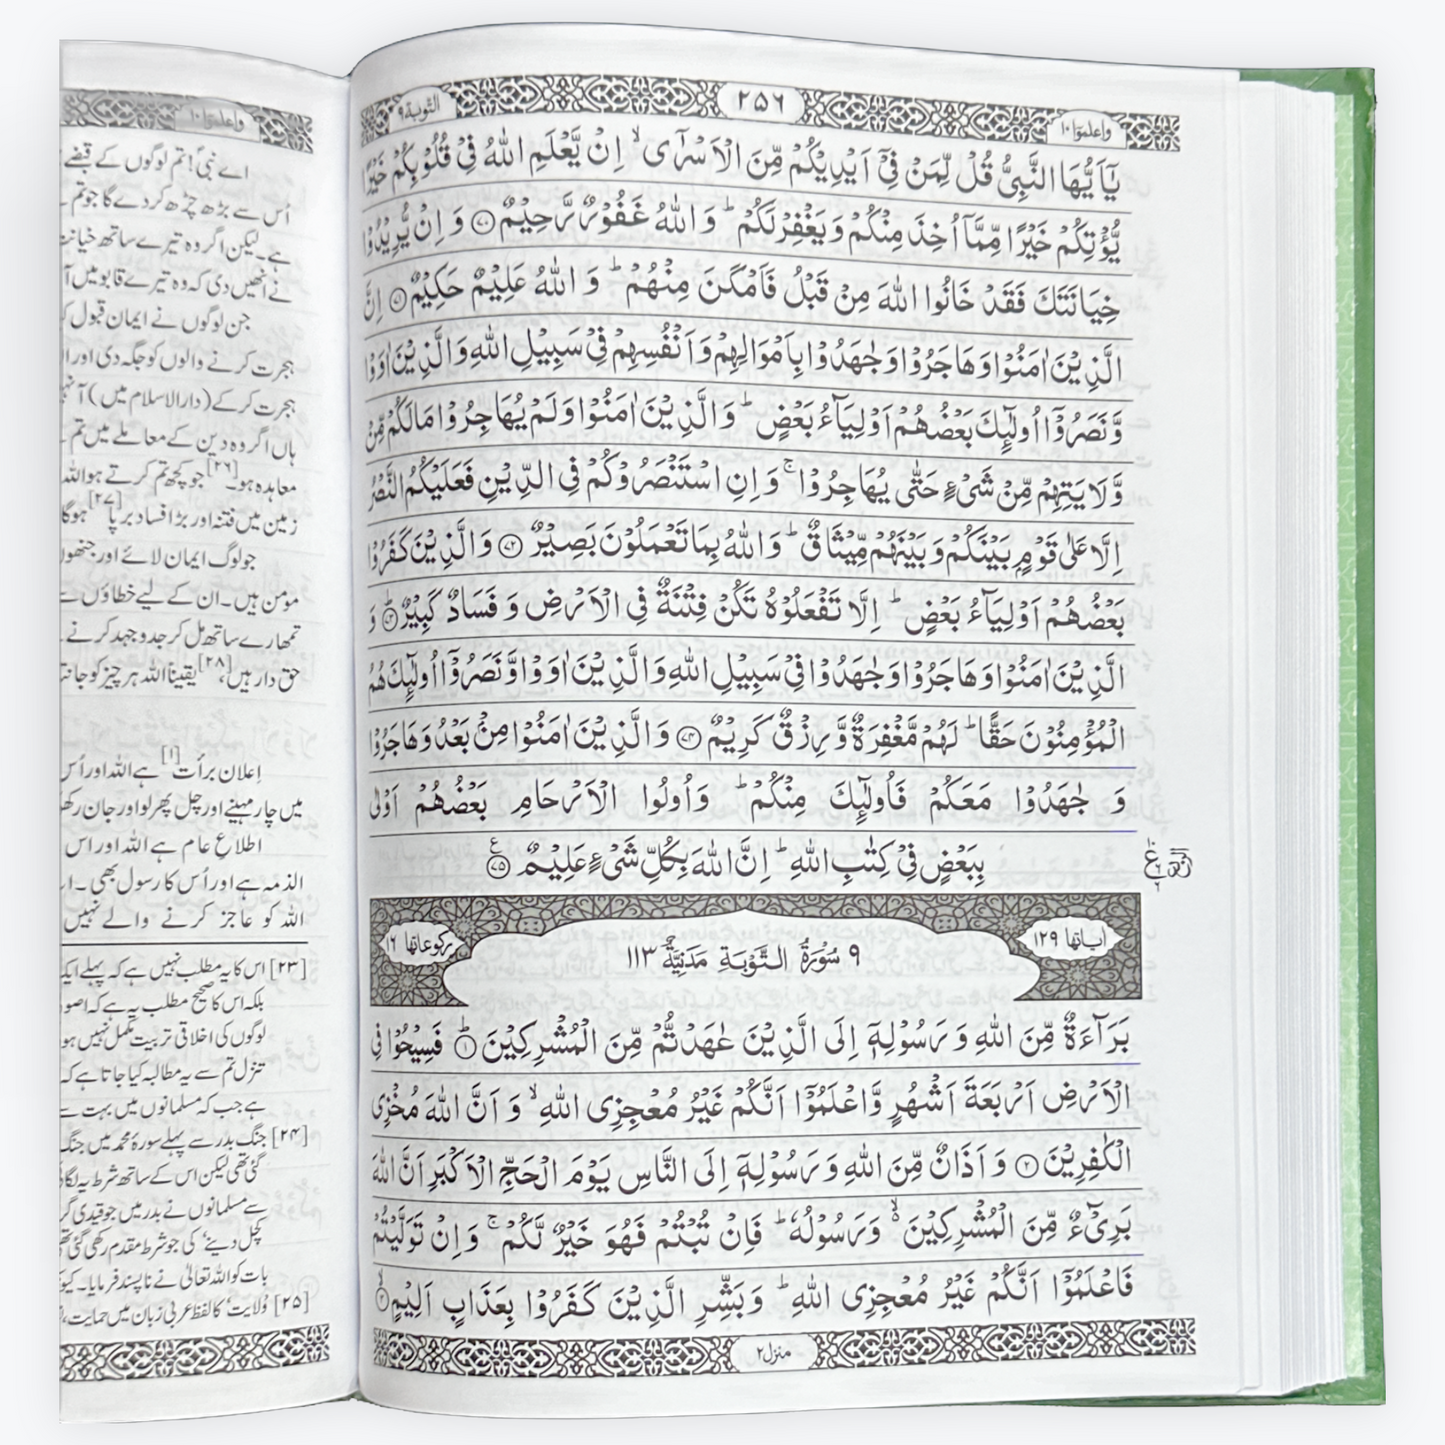 التوبة ٩
٢٥٦
واعلموا ١٠
يٰۤاَيُّهَا النَّبِىُّ قُلْ لِّمَنْ فِىْۤ اَيْدِيْكُمْ مِّنَ الْاَسْرٰٓى ۙ اِنْ يَّعْلَمِ اللّٰهُ فِىْ قُلُوْبِكُمْ خَيْرًا
يُّؤْتِكُمْ خَيْرًا مِّمَّاۤ اُخِذَ مِنْكُمْ وَ يَغْفِرْ لَكُمْ ؕ وَ اللّٰهُ غَفُوْرٌ رَّحِيْمٌ ۝٧٠ وَ اِنْ يُّرِيْدُوْا
خِيَانَتَكَ فَقَدْ خَانُوا اللّٰهَ مِنْ قَبْلُ فَاَمْكَنَ مِنْهُمْ ؕ وَ اللّٰهُ عَلِيْمٌ حَكِيْمٌ ۝٧١ اِنَّ
الَّذِيْنَ اٰمَنُوْا وَ هَاجَرُوْا وَ جٰهَدُوْا بِاَمْوَالِهِمْ وَ اَنْفُسِهِمْ فِىْ سَبِيْلِ اللّٰهِ وَ الَّذِيْنَ اٰوَوْا
وَّ نَصَرُوْۤا اُولٰٓئِكَ بَعْضُهُمْ اَوْلِيَآءُ بَعْضٍ ؕ وَ الَّذِيْنَ اٰمَنُوْا وَ لَمْ يُهَاجِرُوْا مَا لَكُمْ مِّنْ
وَّلَايَتِهِمْ مِّنْ شَىْءٍ حَتّٰى يُهَاجِرُوْا ۚ وَ اِنِ اسْتَنْصَرُوْكُمْ فِى الدِّيْنِ فَعَلَيْكُمُ النَّصْرُ
اِلَّا عَلٰى قَوْمٍۭ بَيْنَكُمْ وَ بَيْنَهُمْ مِّيْثَاقٌ ؕ وَ اللّٰهُ بِمَا تَعْمَلُوْنَ بَصِيْرٌ ۝٧٢ وَ الَّذِيْنَ كَفَرُوْا
بَعْضُهُمْ اَوْلِيَآءُ بَعْضٍ ؕ اِلَّا تَفْعَلُوْهُ تَكُنْ فِتْنَةٌ فِى الْاَرْضِ وَ فَسَادٌ كَبِيْرٌ ۝٧٣ؕ وَ
الَّذِيْنَ اٰمَنُوْا وَ هَاجَرُوْا وَ جٰهَدُوْا فِىْ سَبِيْلِ اللّٰهِ وَ الَّذِيْنَ اٰوَوْا وَّ نَصَرُوْۤا اُولٰٓئِكَ هُمُ
الْمُؤْمِنُوْنَ حَقًّا ؕ لَهُمْ مَّغْفِرَةٌ وَّ رِزْقٌ كَرِيْمٌ ۝٧٤ وَ الَّذِيْنَ اٰمَنُوْا مِنْۢ بَعْدُ وَ هَاجَرُوْا
وَ جٰهَدُوْا مَعَكُمْ فَاُولٰٓئِكَ مِنْكُمْ ؕ وَ اُولُوا الْاَرْحَامِ بَعْضُهُمْ اَوْلٰى
بِبَعْضٍ فِىْ كِتٰبِ اللّٰهِ ؕ اِنَّ اللّٰهَ بِكُلِّ شَىْءٍ عَلِيْمٌ ۝٧٥
اٰياتها ١٢٩
٩ سُوْرَةُ التَّوْبَةِ مَدَنِيَّةٌ ١١٣
ركوعاتها ١٦
بَرَآءَةٌ مِّنَ اللّٰهِ وَ رَسُوْلِهٖۤ اِلَى الَّذِيْنَ عٰهَدْتُّمْ مِّنَ الْمُشْرِكِيْنَ ۝١ؕ فَسِيْحُوْا فِى
الْاَرْضِ اَرْبَعَةَ اَشْهُرٍ وَّ اعْلَمُوْۤا اَنَّكُمْ غَيْرُ مُعْجِزِى اللّٰهِ ۙ وَ اَنَّ اللّٰهَ مُخْزِى
الْكٰفِرِيْنَ ۝٢ وَ اَذَانٌ مِّنَ اللّٰهِ وَ رَسُوْلِهٖۤ اِلَى النَّاسِ يَوْمَ الْحَجِّ الْاَكْبَرِ اَنَّ اللّٰهَ
بَرِىْٓءٌ مِّنَ الْمُشْرِكِيْنَ ۬ۙ وَ رَسُوْلُهٗ ؕ فَاِنْ تُبْتُمْ فَهُوَ خَيْرٌ لَّكُمْ ۚ وَ اِنْ تَوَلَّيْتُمْ
فَاعْلَمُوْۤا اَنَّكُمْ غَيْرُ مُعْجِزِى اللّٰهِ ؕ وَ بَشِّرِ الَّذِيْنَ كَفَرُوْا بِعَذَابٍ اَلِيْمٍ ۝٣ۙ
منزل ٢
واعلموا ١٠
اے نبیؐ! تم لوگوں کے قبضے
اُس سے بڑھ چڑھ کر دے گا جو تم
ہے۔ لیکن اگر وہ تیرے ساتھ خیانت
نے انھیں دی کہ وہ تیرے قابو میں آ
جن لوگوں نے ایمان قبول
ہجرت کرنے والوں کو جگہ دی اور
ہجرت کر کے (دارالاسلام میں) آ
ہاں اگر وہ دین کے معاملے میں تم
معاہدہ ہو۔[۲۶] جو کچھ تم کرتے ہو اللہ
زمین میں فتنہ اور بڑا فساد برپا [۲۷] ہوگا
جو لوگ ایمان لائے اور جنھوں
مومن ہیں۔ ان کے لیے خطاؤں
تمھارے ساتھ مل کر جدوجہد کرنے
حق دار ہیں،[۲۸] یقیناً اللہ ہر چیز کو
اِعلانِ برأت[۱] ہے اللہ اور اُس
میں چار مہینے اور چل پھر لو اور جان
اطلاعِ عام ہے اللہ اور اس
الذمہ ہے اور اُس کا رسول بھی۔
اللہ کو عاجز کرنے والے نہیں
[۲۳] اس کا یہ مطلب نہیں ہے کہ پہلے
بلکہ اس کا صحیح مطلب یہ ہے کہ
لوگوں کی اخلاقی تربیت مکمل نہیں
تنزل تم سے یہ مطالبہ کیا جاتا ہے
ہے جب کہ مسلمانوں میں بہت
[۲۴] جنگِ بدر سے پہلے سورۂ محمد میں جنگ
گئی تھی لیکن اس کے ساتھ شرط یہ
سے مسلمانوں نے بدر میں جو قیدی
کچل دینے‘ کی جو شرط مقدم رکھی گئی
بات کو اللہ تعالیٰ نے ناپسند فرمایا۔
[۲۵] ’ولایت‘ کا لفظ عربی زبان میں حمایت،